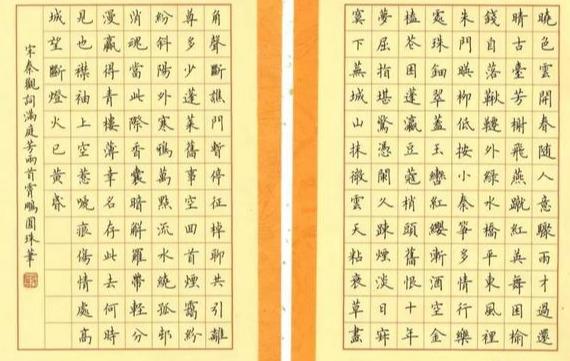 曉色雲開春隨人意驟雨才過還
晴古臺芳榭飛燕蹴紅英舞困榆
錢自落鞦韆外綠水橋平東風裡
朱門暎柳低按小秦箏多情行樂
處珠鈿翠蓋玉轡紅纓漸酒空金
榼花困蓬瀛豆蔻梢頭舊恨十年
夢屈指堪驚憑闌久疎煙淡日寂
寞下蕪城山抹微雲天粘衰草畫
角聲斷譙門暫停征棹聊共引離
尊多少蓬萊舊事空回首煙靄紛
紛斜陽外寒鴉萬點流水繞孤邨
消魂當此際香囊暗解羅帶輕分
漫贏得青樓薄幸名存此去何時
見也襟袖上空惹啼痕傷情處高
城望斷燈火已黃昏
宋秦觀詞滿庭芳兩首霄鵬圓珠筆